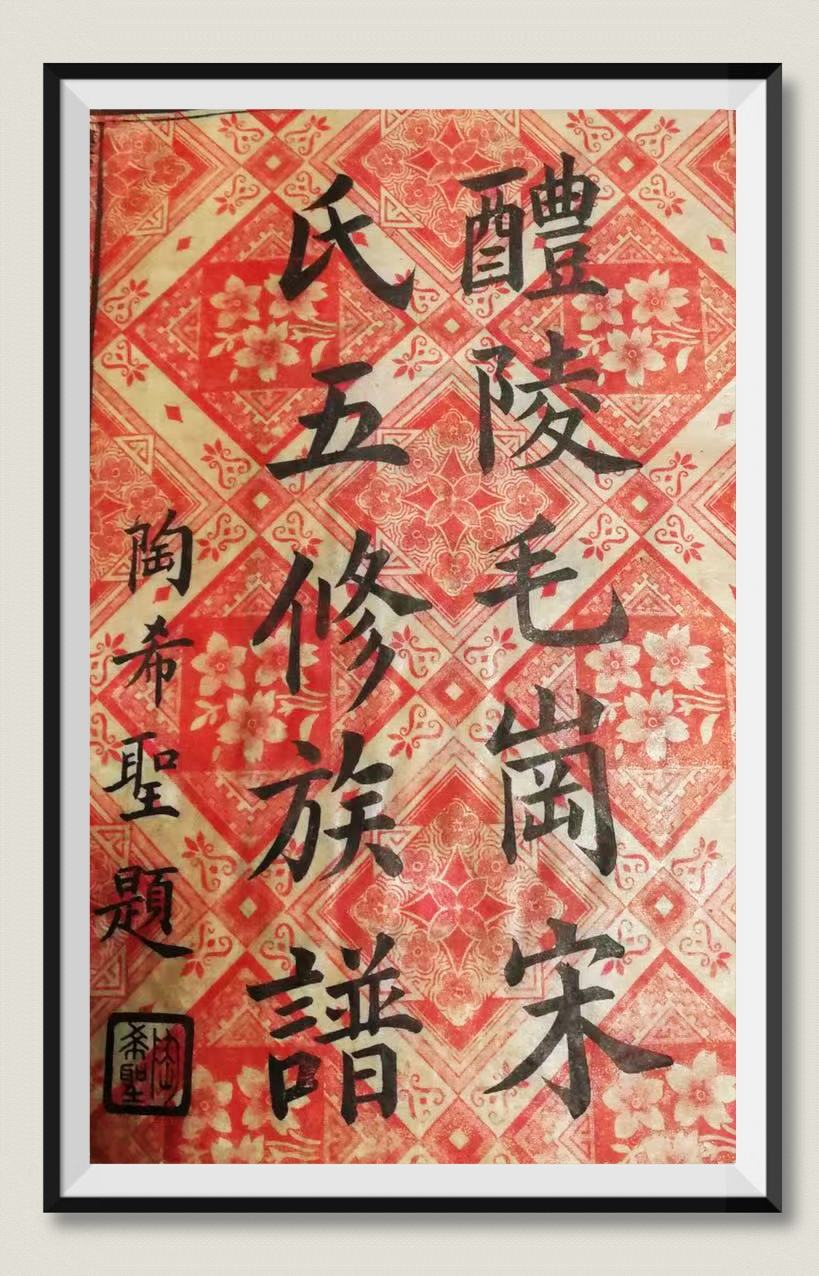 醴陵毛崗宋
氏五修族譜
陶希聖題
陶希聖